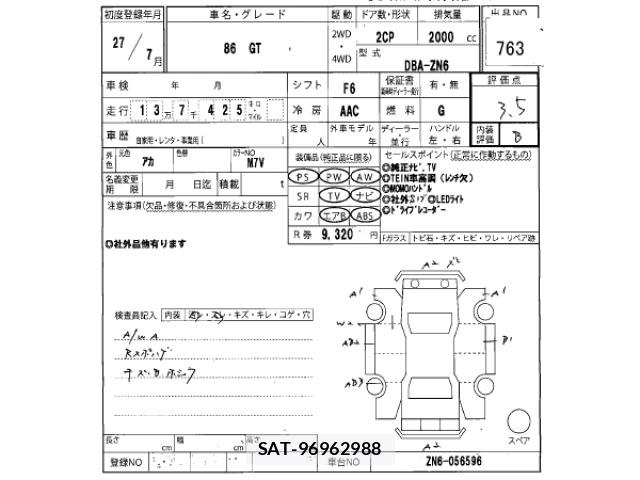 初度登録年月 車名・グレード 駆動 ドア数・形状 排気量 出品NO
27 / 7月 86 GT 2WD ・ 4WD 2CP 2000 cc 763
型式 DBA-ZN6
車検 年 月 シフト F6 保証書 有・無 評価点
走行 13万7千425 キロ・マイル 冷房 AAC 燃料 G 3.5
車歴 自家用・レンタ・事業用 ( 定員 人 外車モデル 年 ディーラー・並行 ハンドル 左・右 内装評価 B
外色 元色 アカ 色替 カラーNO M7V 装備品(純正品に限る) セールスポイント(正常に作動するもの)
名義変更期限 月 日迄 積載 t PS PW AW ◎純正ナビ,TV
SR TV ナビ ◎TEIN車高調 (レンチ欠)
注意事項(欠品・修復・不具合箇所および状態) カワ エアB ABS ◎MOMOハンドル
◎社外マフラ◎LEDライト
◎ドライブレコーダー
R券 9,320 円 Fガラス トビ石・キズ・ヒビ・ワレ・リペア跡
◎社外品他有ります
A2
A1 A1
検査員記入 内装 汚レ・スレ・キズ・キレ・コゲ・穴
W2
AB2 B1
AB3
A2
スペア
長さ cm 幅 cm 高さ
SAT-96962988
登録NO 車台NO ZN6-056596